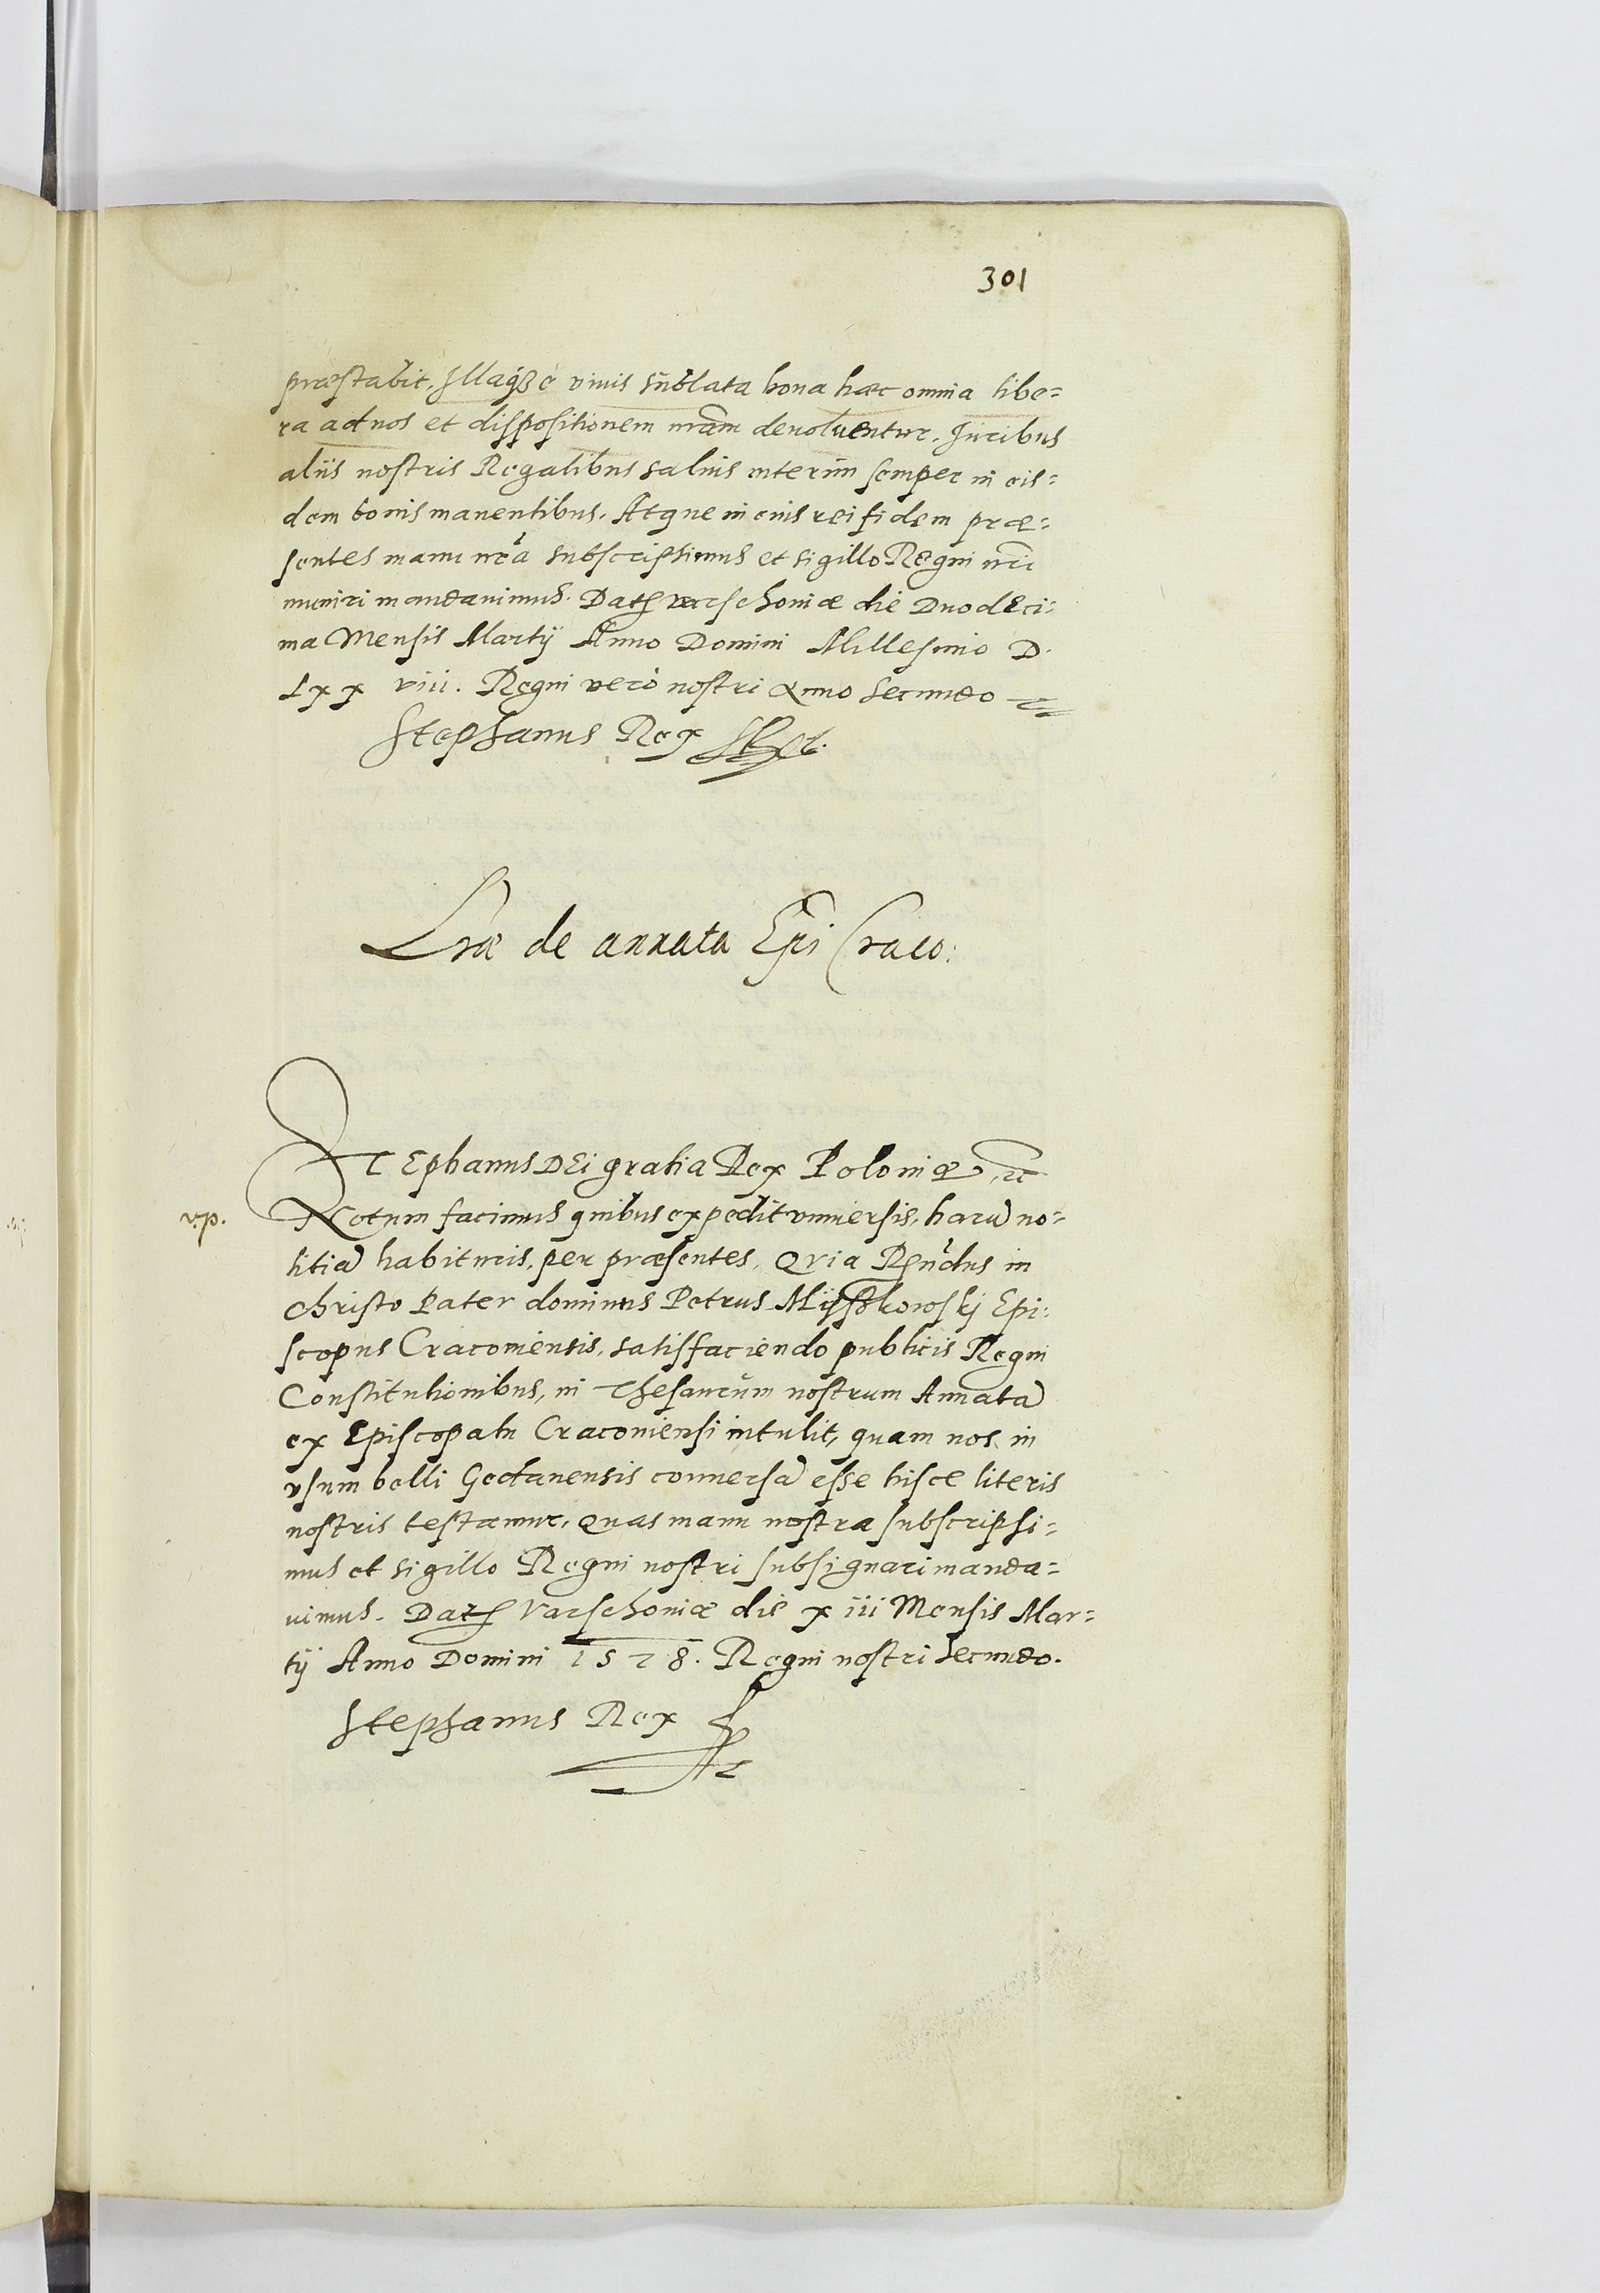 301
præstabit. Illaq́ȝ è viuis sublata bona hæc omnia libe=
ra ad nos et dispositionem nr̃am deuoluentur. Iuribus
aliis nostris Regalibus saluis interim semper in eis=
dem bonis manentibus. Atque in eius rei fidem præ=
sentes manu nr̃a subscripsimus et sigillo Regni nr̃i
muniri mandauimus. Datȝ Varschoniæ die Duodeci=
ma Mensis Martÿ Anno Domini Millesimo D.
Lxx viii. Regni verò nostri Anno Secundo
Stephanus Rex
Lr̃æ de annata Ep̃i Craco:
Stephanus DEi gratia Rex Poloniæ, etc
v.p.
Notum facimus quibus expedit vniuersis, harũ no=
titiã habituris, per præsentes, Qvia Reuńdus in
Christo Pater dominus Petrus Mÿsskowskj Epi:
scopus Cracouiensis, satisfaciendo publicis Regni
Constitutionibus, in Thesaurum nostrum Annatã
ex Episcopatu Cracouiensi intulit, quam nos in
vsum belli Gedanensis conuersã esse hisce literis
nostris testamur, Quas manu nostra subscripsi=
mus et sigillo Regni nostri subsignari manda=
uimus. Datȝ Varschoniæ die xiii Mensis Mar=
tÿ Anno Domini 1578. Regni nostri Secundo.
Stephanus Rex